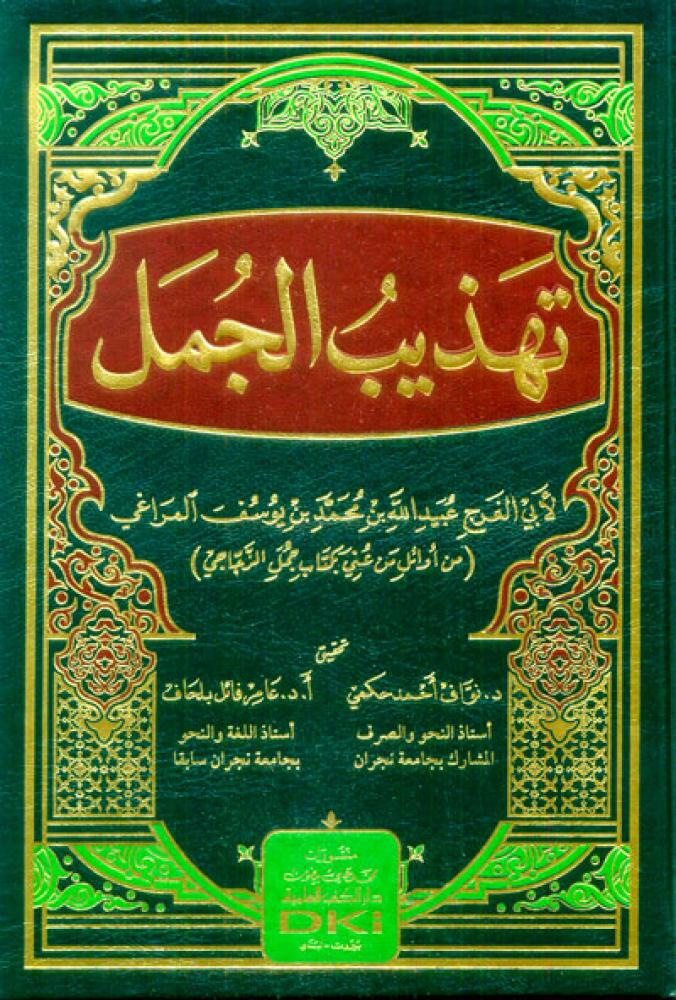 تهذيبُ الجُمَل
لأبي الفرج عُبيد الله بن محمَّد بن يوسُف المراغي
(من أوائل من عُني بكتاب جُمل الزَّجَّاجي)
تحقيق
د. نواف أحمد حكمي
أستاذ النحو والصرف
المشارك بجامعة نجران
أ. د. عامر فائل بلحاف
أستاذ اللغة والنحو
بجامعة نجران سابقا
منشورات
محمد علي بيضون
دار الكتب العلمية
DKi
بيروت - لبنان